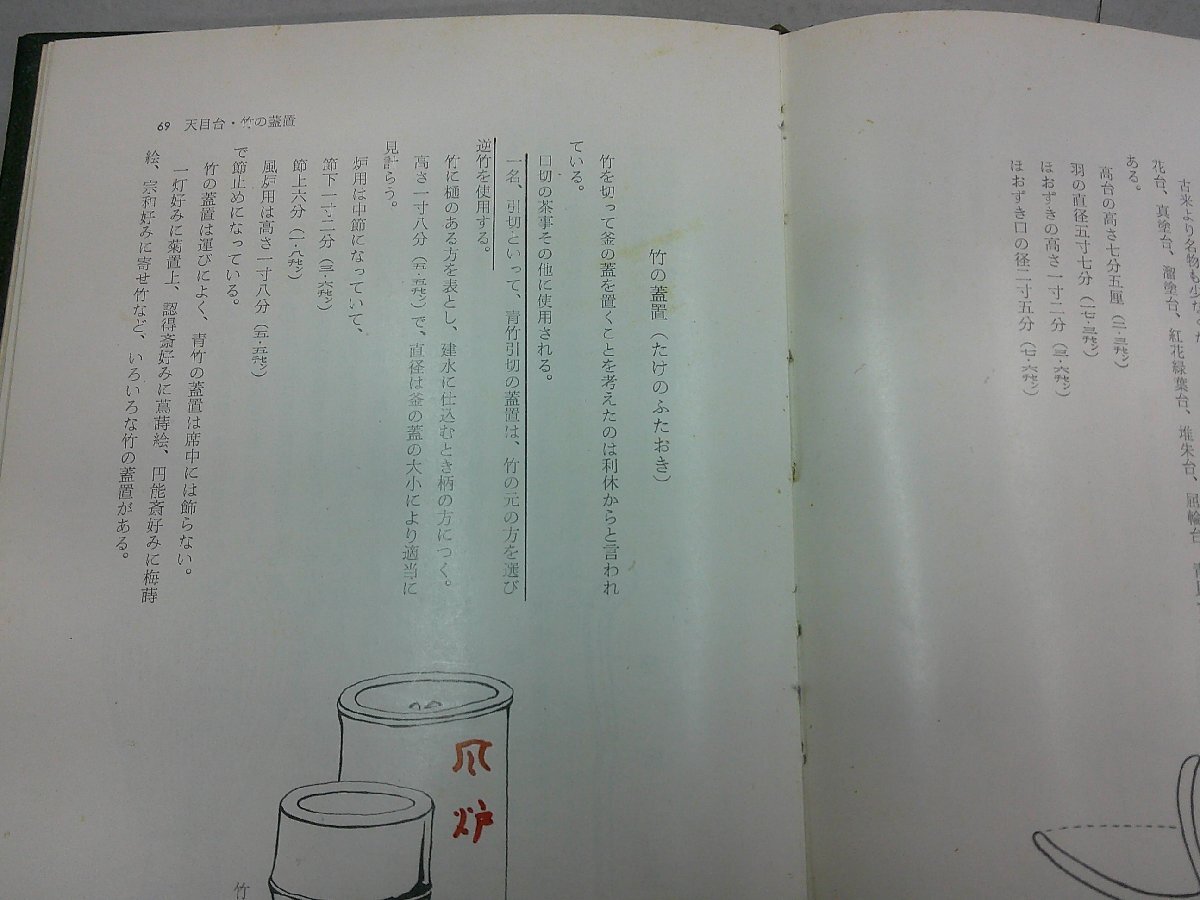 古来より名物も少な
花台、真塗台、溜塗台、紅花緑葉台、堆朱台、屈輪台
ある。
高台の高さ七分五厘（二・三センチ）
羽の直径五寸七分（一七・三センチ）
ほおずきの高さ一寸二分（三・六センチ）
ほおずき口の径二寸五分（七・六センチ）
竹の蓋置（たけのふたおき）
竹を切って釜の蓋を置くことを考えたのは利休からと言われ
ている。
口切の茶事その他に使用される。
一名、引切といって、青竹引切の蓋置は、竹の元の方を選び
逆竹を使用する。
竹に樋のある方を表とし、建水に仕込むとき柄の方につく。
高さ一寸八分（五・五センチ）で、直径は釜の蓋の大小により適当に
見計らう。
炉用は中節になっていて、
節下一寸二分（三・六センチ）
節上六分（一・八センチ）
風炉用は高さ一寸八分（五・五センチ）
で節止めになっている。
竹の蓋置は運びによく、青竹の蓋置は席中には飾らない。
一灯好みに菊置上、認得斎好みに蔦蒔絵、円能斎好みに梅蒔
絵、宗和好みに寄せ竹など、いろいろな竹の蓋置がある。
69 天目台・竹の蓋置
風炉
竹